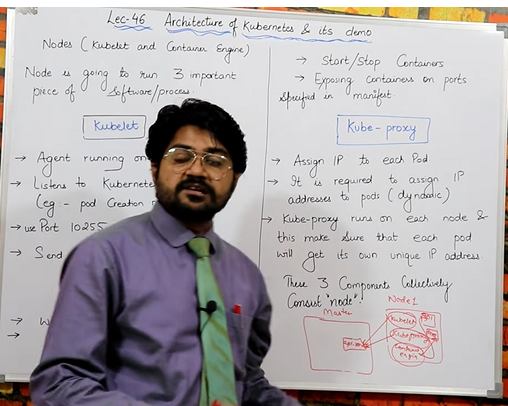 Lec-46 Architecture of Kubernetes & its demo
Nodes (Kubelet and Container Engine)
Node is going to run 3 important
piece of Software/process.
Kubelet
→ Agent running on
→ Listens to Kubernete
(eg - pod Creation
→ use Port 10255
→ Send
→ w
→
→ Start/Stop Containers
→ Exposing containers on ports
Specified in manifest.
Kube-proxy
→ Assign IP to each Pod
→ It is required to assign IP
addresses to pods (dynamic)
→ Kube-proxy runs on each node &
this make Sure that each pod
will get its own unique IP address.
These 3 Components Collectively
Consist "node".
Master
Node1
Kubelet
Kube proxy
Container
engin